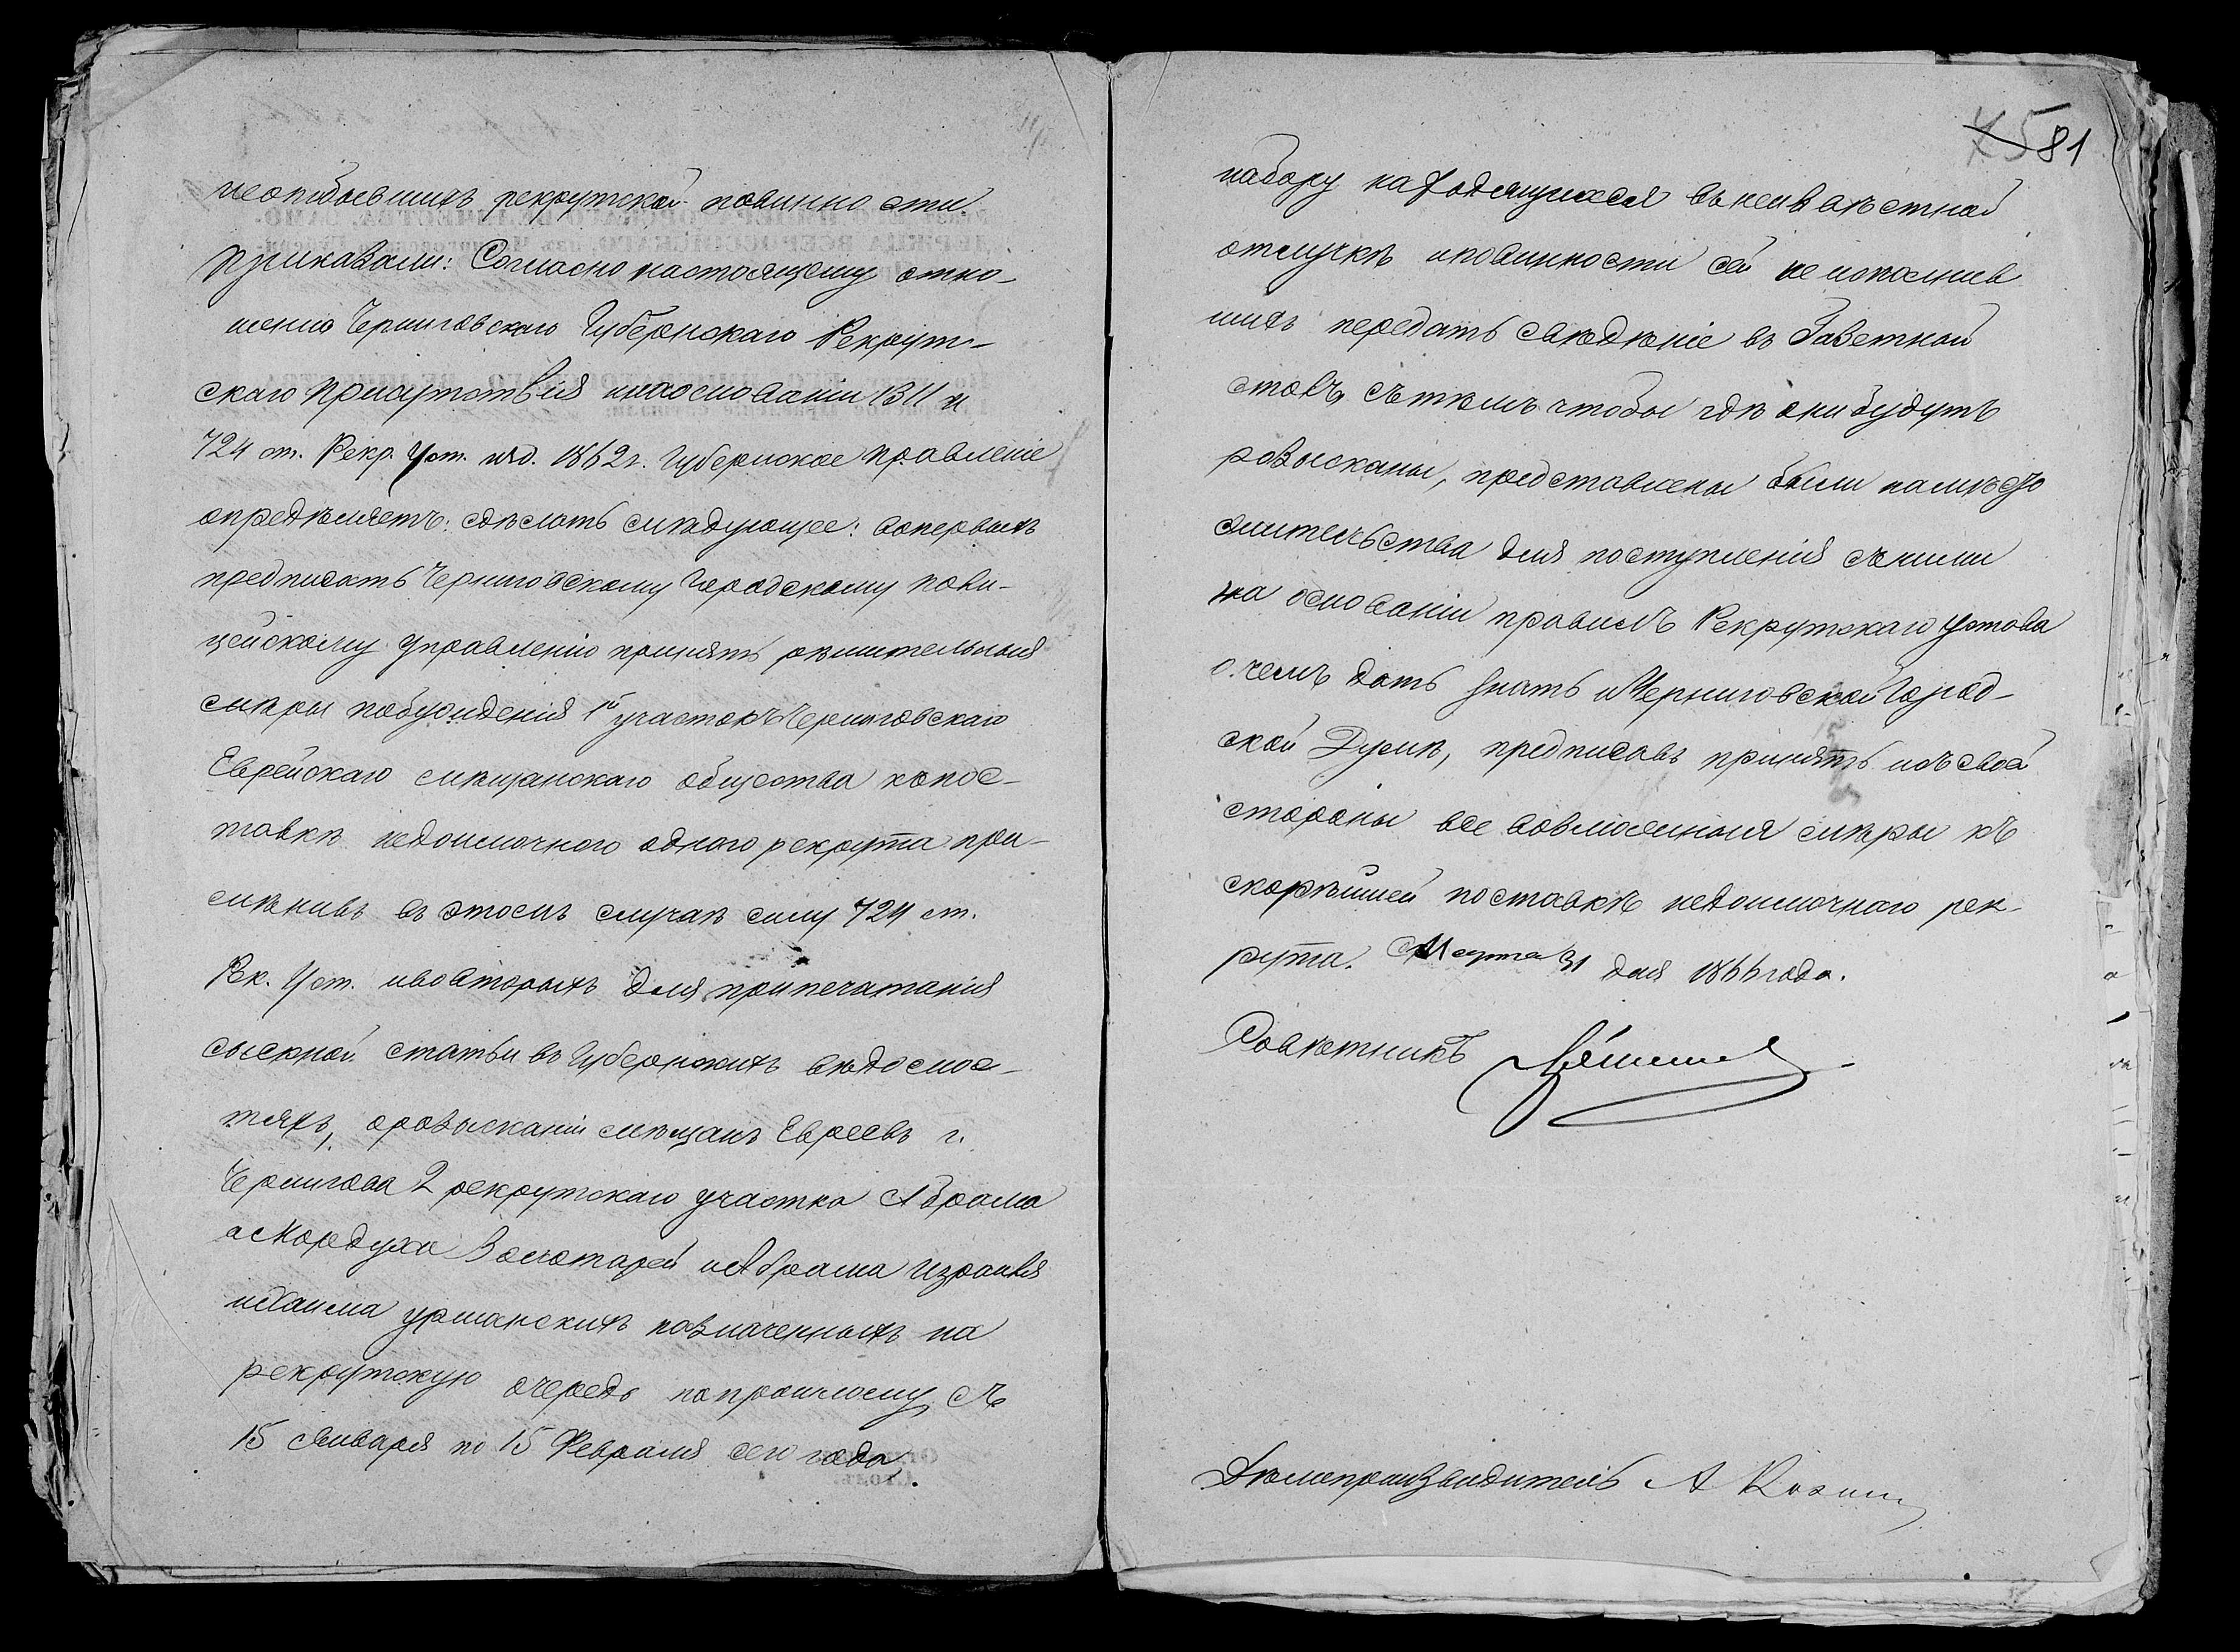 неотбывшихъ рекрутской повинности.
Приказали: Согласно настоящему отно-
шенію Черниговскаго Губернскаго Рекрут-
скаго Присутствія и на основаніи 1311 и
724 ст. Рекр. Уст. изд. 1862 г. Губернское Правленіе
опредѣляетъ: сдѣлать слѣдующее: вопервыхъ
предписать Черниговскому Городскому поли-
цейскому управленію принять рѣшительныя
мѣры побужденія 1й участокъ Черниговскаго
Еврейскаго мѣщанскаго общества къ пос-
тавкѣ недоимочного одного рекрута при-
мѣнивъ въ этомъ случаѣ силу 724 ст.
Рек. Уст. и во вторыхъ для припечатанія
сыскной статьи въ Губернскихъ вѣдомос-
тяхъ, о розысканіи мѣщанъ Евреевъ г.
Чернигова 2 рекрутскаго участка Абрама
и Мордуха Золотарей и Абрама Израиля
и Хаима Уршанскихъ назначенныхъ на
рекрутскую очередь по прошлому съ
15 Января по 15 Февраля сего года
81
набору находящихся въ неизвѣстной
отлучкѣ и повинности сей не исполнив
шихъ передать свѣдѣніе въ Газетный
столъ, съ тѣмъ чтобы гдѣ они будутъ
розысканы, представлены были на мѣсто
жительства для поступленія съ ними
на основаніи правилъ Рекрутскаго устава
о чемъ дать знать и Черниговской Город-
ской Думѣ, предписавъ принять и съ своей
стороны все возможныя мѣры къ
скорѣйшей поставкѣ недоимочнаго рек-
рута. Марта 31 дня 1866 года.
Совѣтникъ
Дѣлопроизводитель А